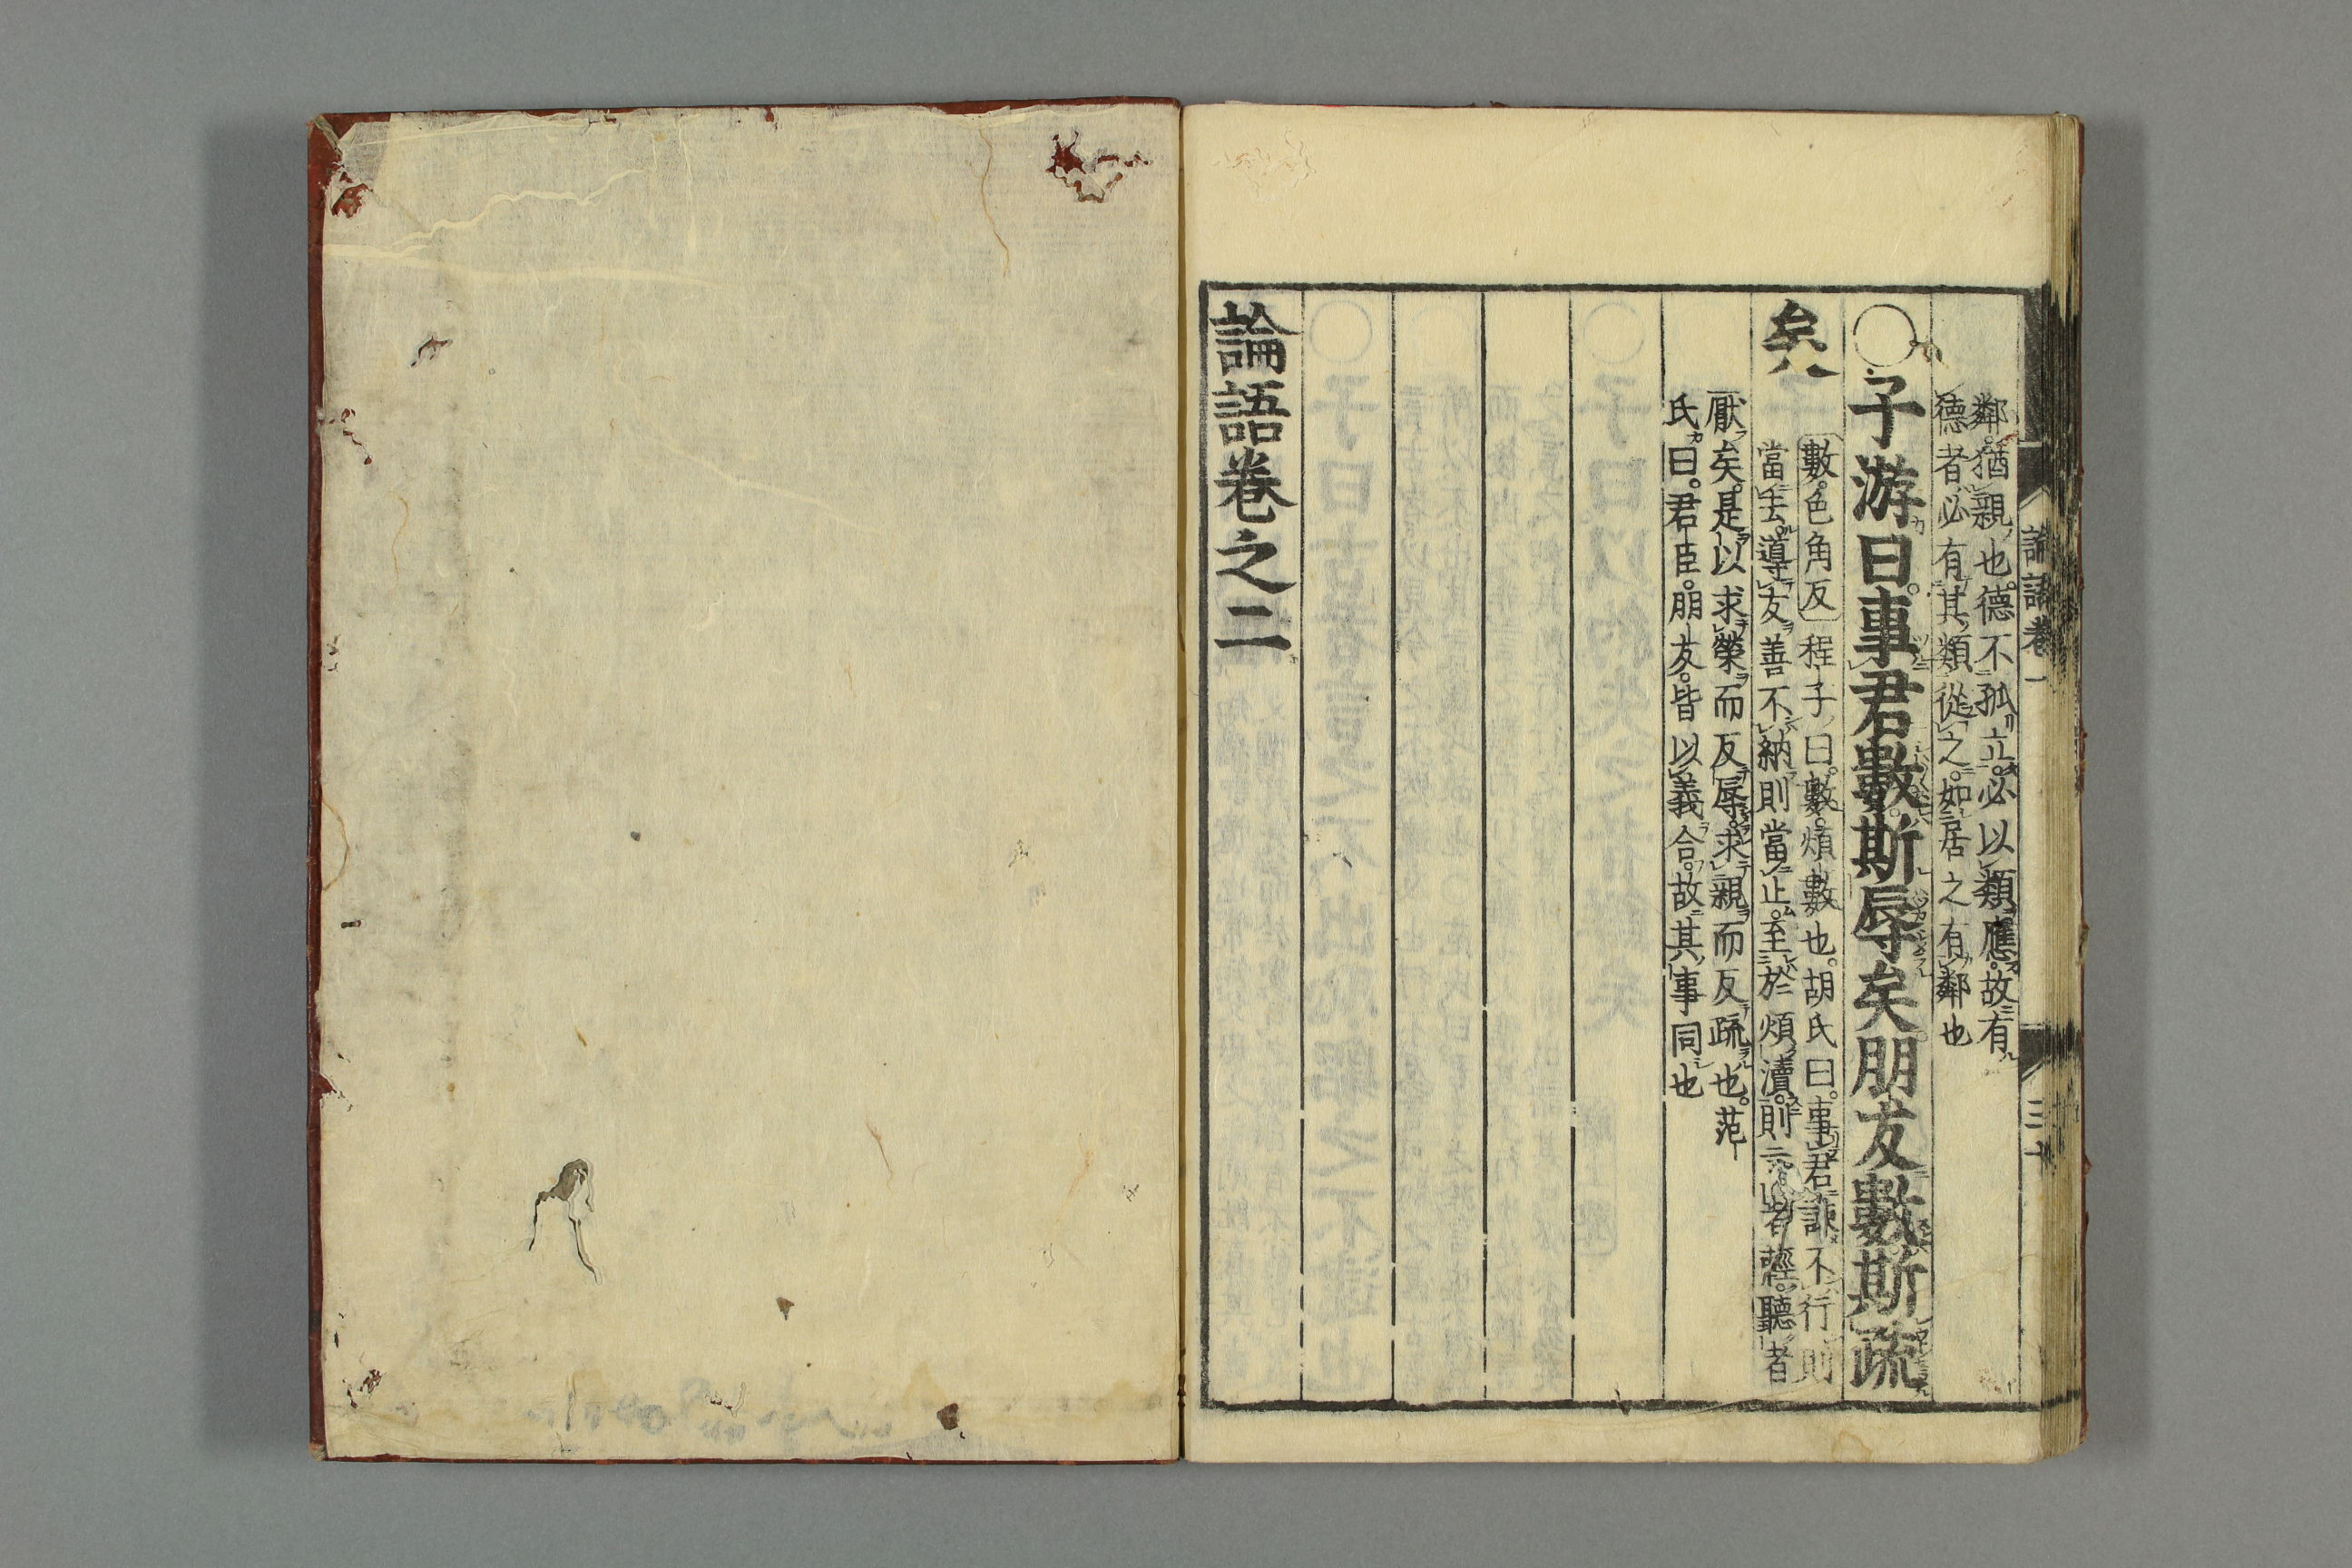 鄰。猶親也。德不孤立。必以類應。故有
德者必有其類從之。如居之有鄰也
○子游曰。事君數。斯辱矣。朋友數。斯疏
矣
數。色角反 程子曰。數。煩數也。胡氏曰。事君諫不行則
當去。導友善不納則當止。至於煩瀆。則言者輕。聽者
厭矣。是以求榮而反辱。求親而反疏也。范
氏曰。君臣。朋友。皆以義合。故其事同也
論語卷之二
論語卷一